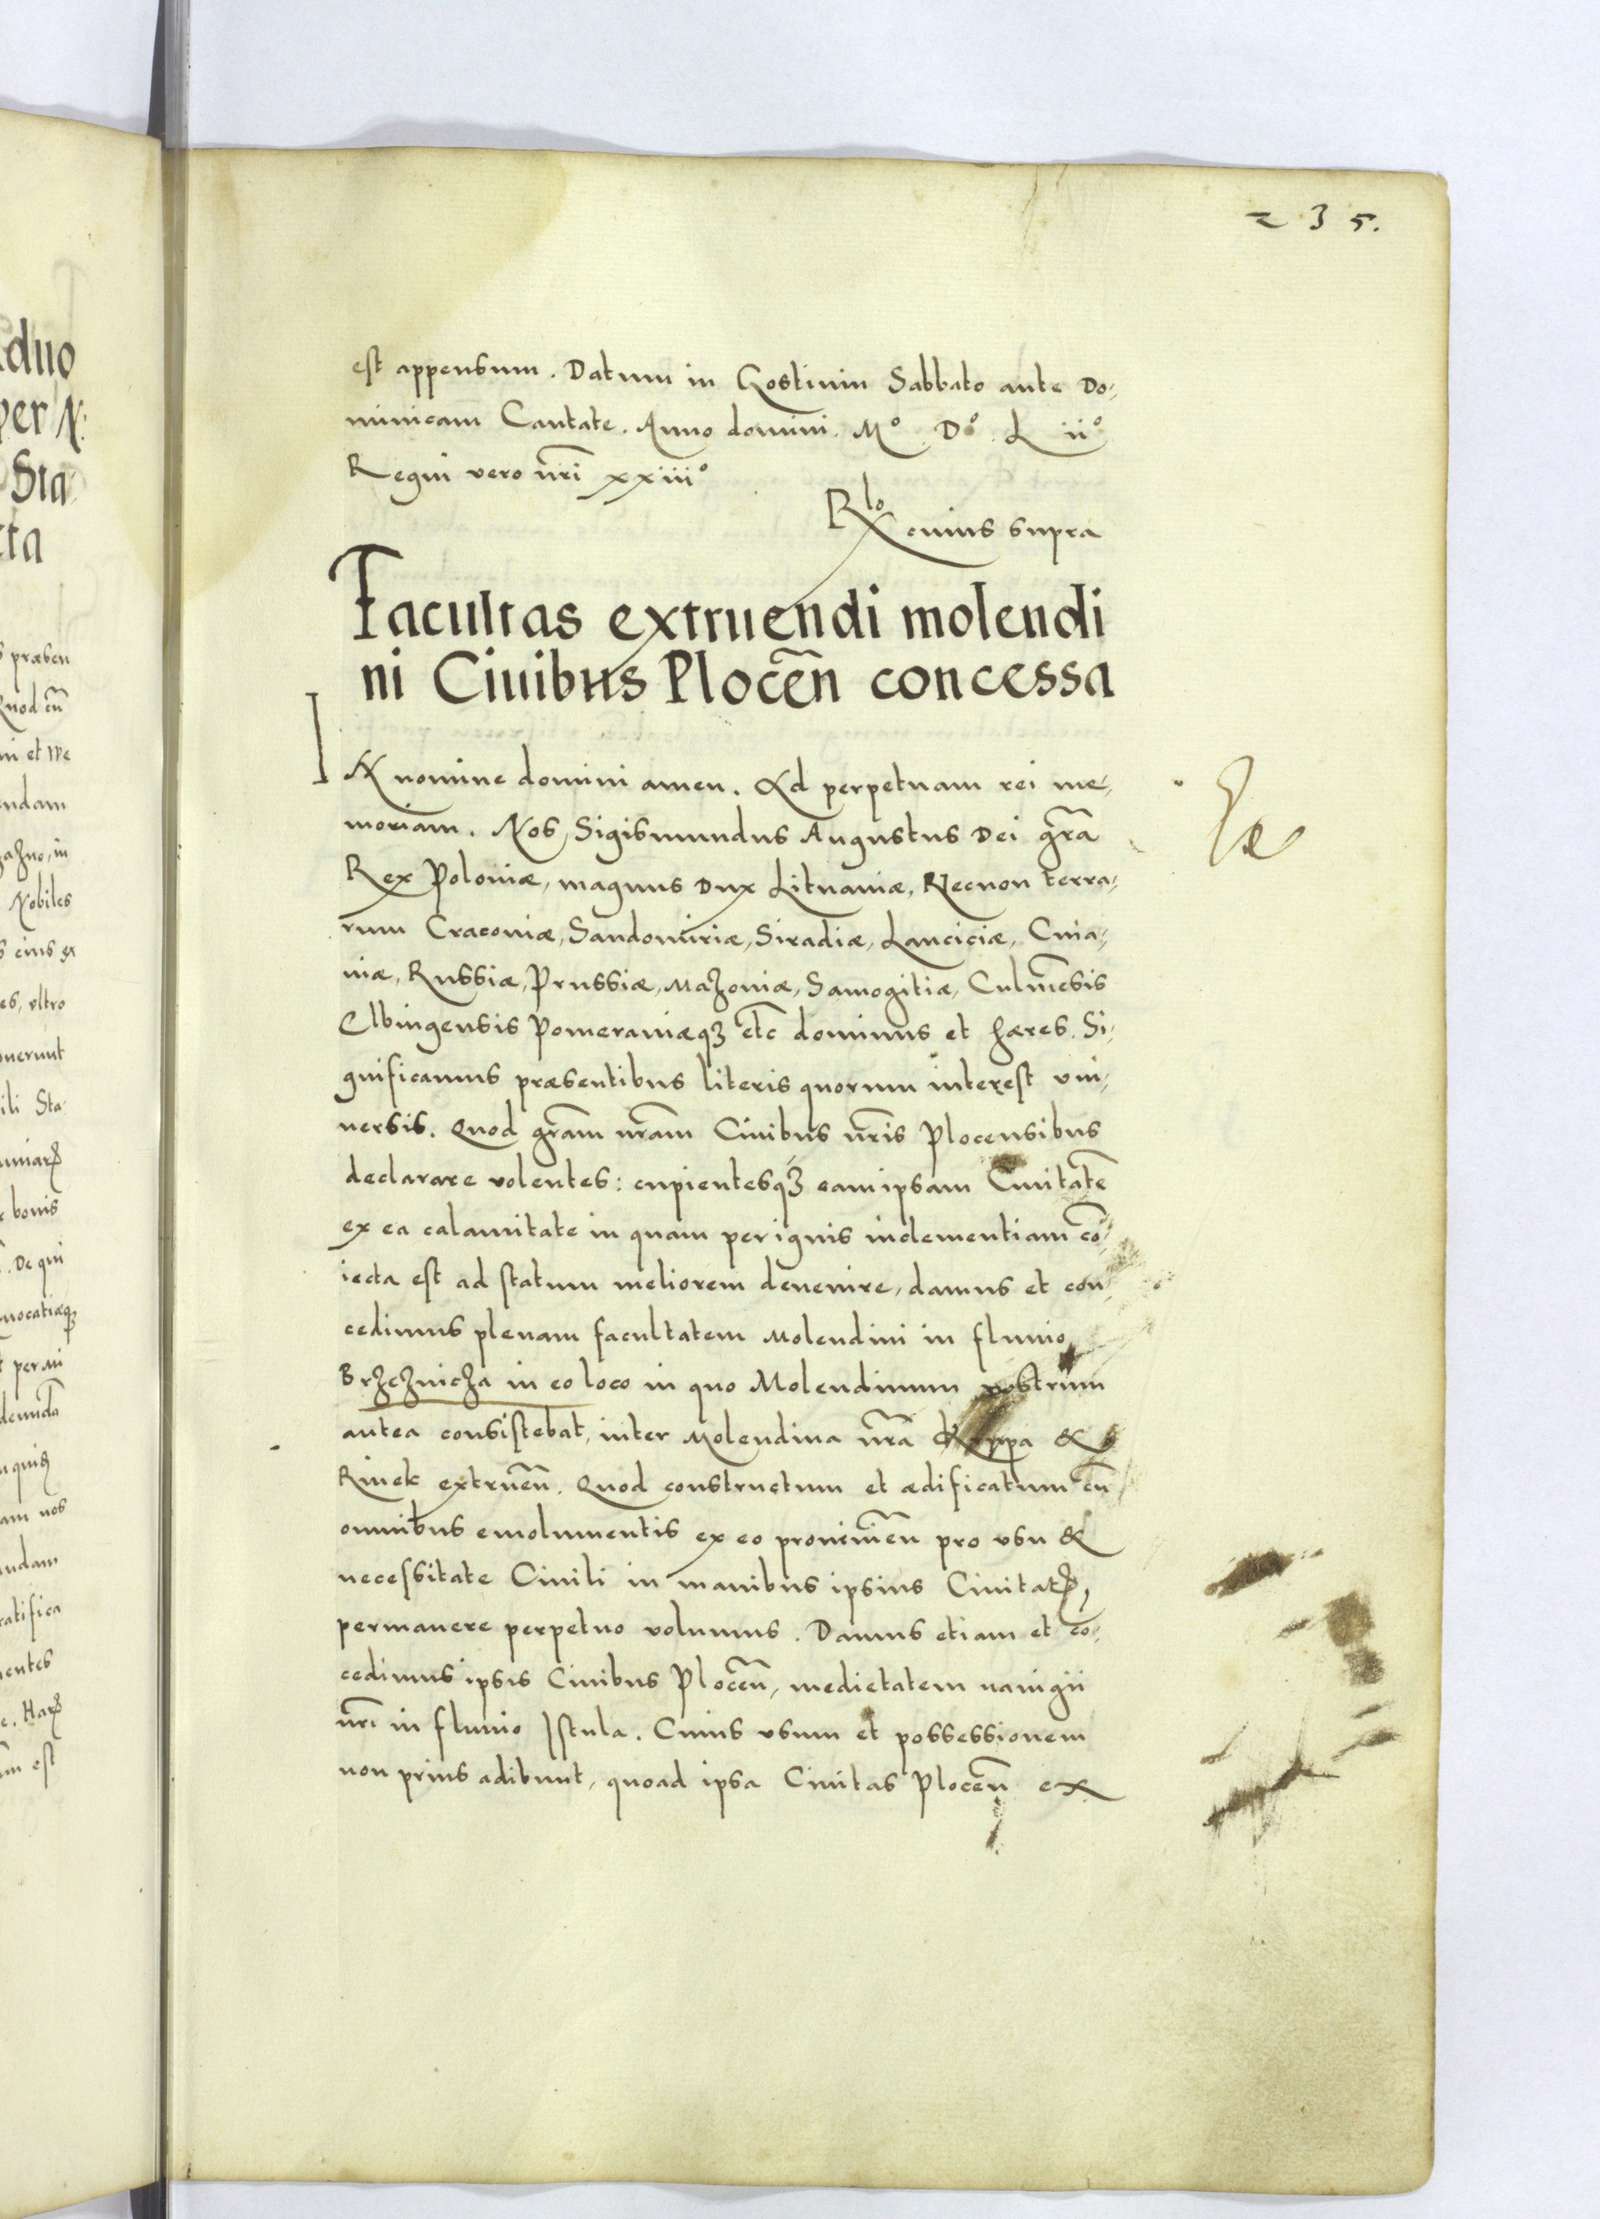 235.
est appensum. Datum in Gostinin Sabbato ante Do-
minicam Cantate. Anno domini. Mº Dº L iiº
Regni vero nr̃i xxiiiº
Rlo cuius supra
Facultas extruendi molendi
ni Ciuibus Ploceñ concessa
IN nomine domini amen. Ad perpetuam rei me-
moriam. Nos Sigismundus Augustus Dei gr̃a
Rex Poloniæ, magnus Dux Lituaniæ, Necnon terra-
rum Cracouiæ, Sandomiriæ, Siradiæ, Lanciciæ, Cuia-
uiæ, Russiæ, Prussiæ, Mazouiæ, Samogitiæ, Culmẽsis
Elbingensis Pomeraniæqꝫ etc dominus et hæres. Si-
gnificamus præsentibus literis quorum interest vni-
uersis. Quod gr̃am nr̃am Ciuibus nr̃is Plocensibus
declarare volentes: cupientesqꝫ eamipsam Ciuitatẽ
ex ea calamitate in quam per ignis inclementiam cõ-
iecta est ad statum meliorem deuenire, damus et con-
cedimus plenam facultatem Molendini in fluuio
Brzcznicza in eo loco in quo Molendinum nostrum
antea consistebat, inter Molendina nr̃a &
Rinek extrueñ. Quod constructum et ædificatum cũ
omnibus emolumentis ex eo prouenieñ pro vsu &
necessitate Ciuili in manibus ipsius Ciuitatꝭ,
permanere perpetuo volumus. Damus etiam et cõ-
cedimus ipsis Ciuibus Ploceñ, medietatem nauigii
nr̃i in fluuio Istula. Cuius vsum et possessionem
non prius adibunt, quoad ipsa Ciuitas Ploceñ ex